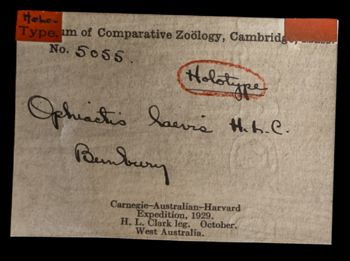 Holo-
Type.
um of Comparative Zoölogy, Cambridge,
No. 5055.
Holotype
Ophiactis laevis H.L.C.
Bunbury
Carnegie-Australian-Harvard
Expedition, 1929.
H. L. Clark leg. October.
West Australia.